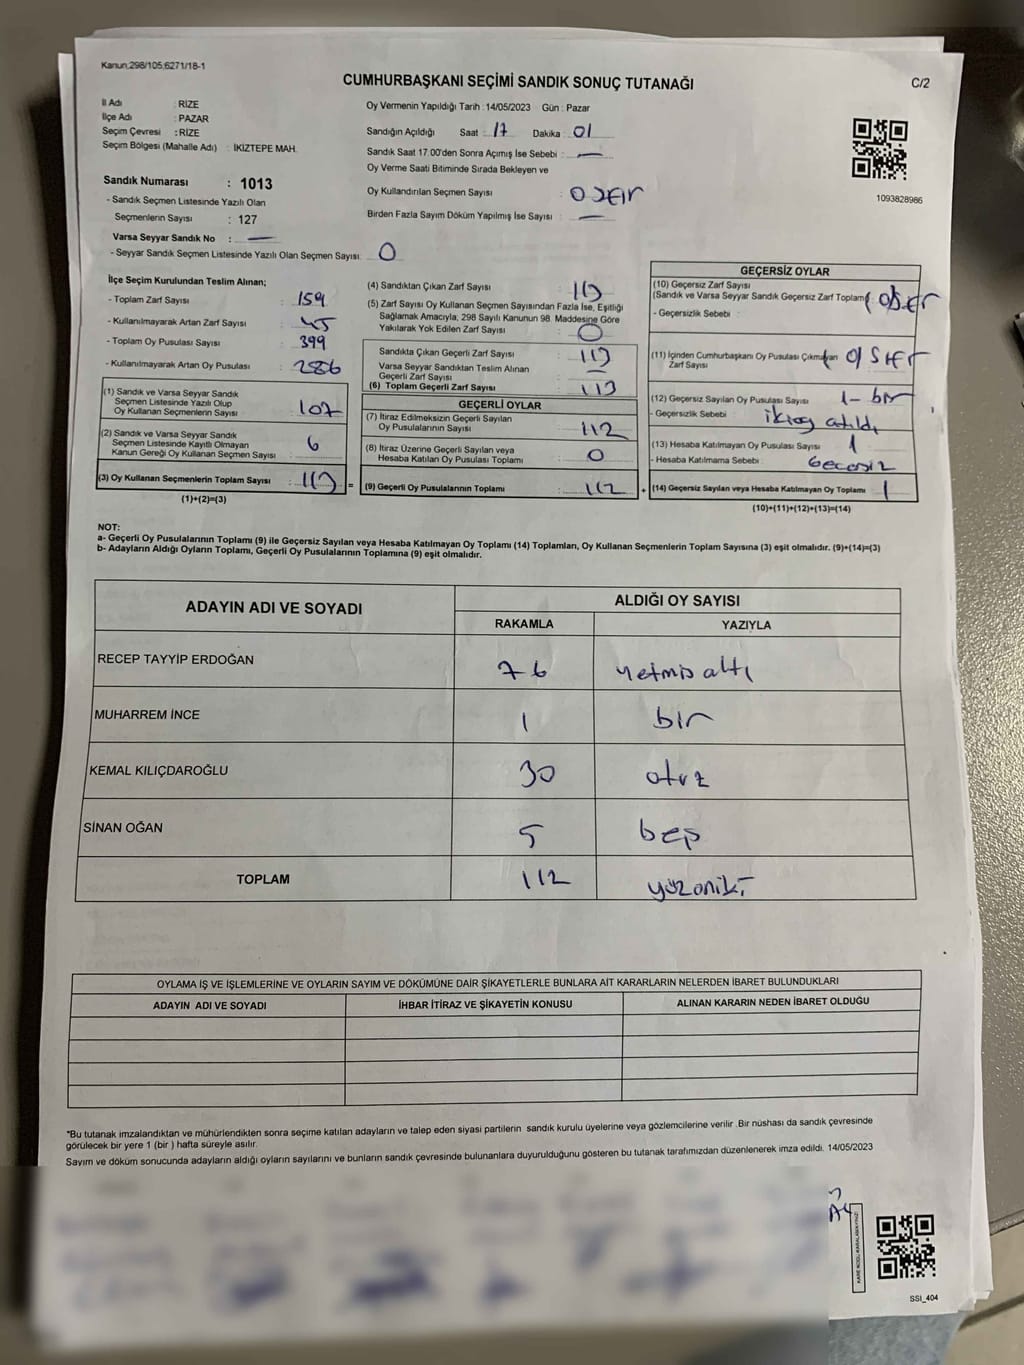 Kanun;298/105;6271/18-1
CUMHURBAŞKANI SEÇİMİ SANDIK SONUÇ TUTANAĞI
C/2
İl Adı : RİZE
İlçe Adı : PAZAR
Seçim Çevresi : RİZE
Seçim Bölgesi (Mahalle Adı) : İKİZTEPE MAH.
Sandık Numarası : 1013
- Sandık Seçmen Listesinde Yazılı Olan
Seçmenlerin Sayısı : 127
Varsa Seyyar Sandık No : —
- Seyyar Sandık Seçmen Listesinde Yazılı Olan Seçmen Sayısı: 0
Oy Vermenin Yapıldığı Tarih : 14/05/2023 Gün : Pazar
Sandığın Açıldığı Saat : 17 Dakika : 01
Sandık Saat 17:00'den Sonra Açımış İse Sebebi : —
Oy Verme Saati Bitiminde Sırada Bekleyen ve
Oy Kullandırılan Seçmen Sayısı : 0 SIFIR
Birden Fazla Sayım Döküm Yapılmış İse Sayısı : —
1093828986
İlçe Seçim Kurulundan Teslim Alınan;
- Toplam Zarf Sayısı : 159
- Kullanılmayarak Artan Zarf Sayısı : 45
- Toplam Oy Pusulası Sayısı : 399
- Kullanılmayarak Artan Oy Pusulası : 286
(1) Sandık ve Varsa Seyyar Sandık
Seçmen Listesinde Yazılı Olup
Oy Kullanan Seçmenlerin Sayısı : 107
(2) Sandık ve Varsa Seyyar Sandık
Seçmen Listesinde Kayıtlı Olmayan
Kanun Gereği Oy Kullanan Seçmen Sayısı : 6
(3) Oy Kullanan Seçmenlerin Toplam Sayısı : 113 =
(1)+(2)=(3)
(4) Sandıktan Çıkan Zarf Sayısı : 113
(5) Zarf Sayısı Oy Kullanan Seçmen Sayısından Fazla İse, Eşitliği
Sağlamak Amacıyla; 298 Sayılı Kanunun 98. Maddesine Göre
Yakılarak Yok Edilen Zarf Sayısı : 0
Sandıkta Çıkan Geçerli Zarf Sayısı : 113
Varsa Seyyar Sandıktan Teslim Alınan
Geçerli Zarf Sayısı : —
(6) Toplam Geçerli Zarf Sayısı : 113
GEÇERLİ OYLAR
(7) İtiraz Edilmeksizin Geçerli Sayılan
Oy Pusulalarının Sayısı : 112
(8) İtiraz Üzerine Geçerli Sayılan veya
Hesaba Katılan Oy Pusulası Toplamı : 0
(9) Geçerli Oy Pusulalarının Toplamı : 112 +
GEÇERSİZ OYLAR
(10) Geçersiz Zarf Sayısı
(Sandık ve Varsa Seyyar Sandık Geçersiz Zarf Toplamı)
- Geçersizlik Sebebi :
(11) İçinden Cumhurbaşkanı Oy Pusulası Çıkmayan
Zarf Sayısı
(12) Geçersiz Sayılan Oy Pusulası Sayısı : 1- bir
- Geçersizlik Sebebi : atıldı
(13) Hesaba Katılmayan Oy Pusulası Sayısı : 1
- Hesaba Katılmama Sebebi : Gecersiz
(14) Geçersiz Sayılan veya Hesaba Katılmayan Oy Toplamı : 1
(10)+(11)+(12)+(13)=(14)
NOT:
a- Geçerli Oy Pusulalarının Toplamı (9) ile Geçersiz Sayılan veya Hesaba Katılmayan Oy Toplamı (14) Toplamları, Oy Kullanan Seçmenlerin Toplam Sayısına (3) eşit olmalıdır. (9)+(14)=(3)
b- Adayların Aldığı Oyların Toplamı, Geçerli Oy Pusulalarının Toplamına (9) eşit olmalıdır.
ADAYIN ADI VE SOYADI
ALDIĞI OY SAYISI
RAKAMLA
YAZIYLA
RECEP TAYYİP ERDOĞAN 76 yetmiş altı
MUHARREM İNCE 1 bir
KEMAL KILIÇDAROĞLU 30 otuz
SİNAN OĞAN 5 beş
TOPLAM 112 yüzoniki
OYLAMA İŞ VE İŞLEMLERİNE VE OYLARIN SAYIM VE DÖKÜMÜNE DAİR ŞİKAYETLERLE BUNLARA AİT KARARLARIN NELERDEN İBARET BULUNDUKLARI
ADAYIN ADI VE SOYADI
İHBAR İTİRAZ VE ŞİKAYETİN KONUSU
ALINAN KARARIN NEDEN İBARET OLDUĞU
*Bu tutanak imzalandıktan ve mühürlendikten sonra seçime katılan adayların ve talep eden siyasi partilerin sandık kurulu üyelerine veya gözlemcilerine verilir .Bir nüshası da sandık çevresinde
görülecek bir yere 1 (bir ) hafta süreyle asılır.
Sayım ve döküm sonucunda adayların aldığı oyların sayılarını ve bunların sandık çevresinde bulunanlara duyurulduğunu gösteren bu tutanak tarafımızdan düzenlenerek imza edildi. 14/05/2023
SSI_404